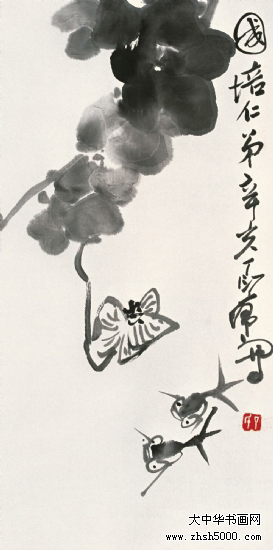 國培仁弟辛亥丁衍庸寫
大中华书画网
www.zhsh5000.com